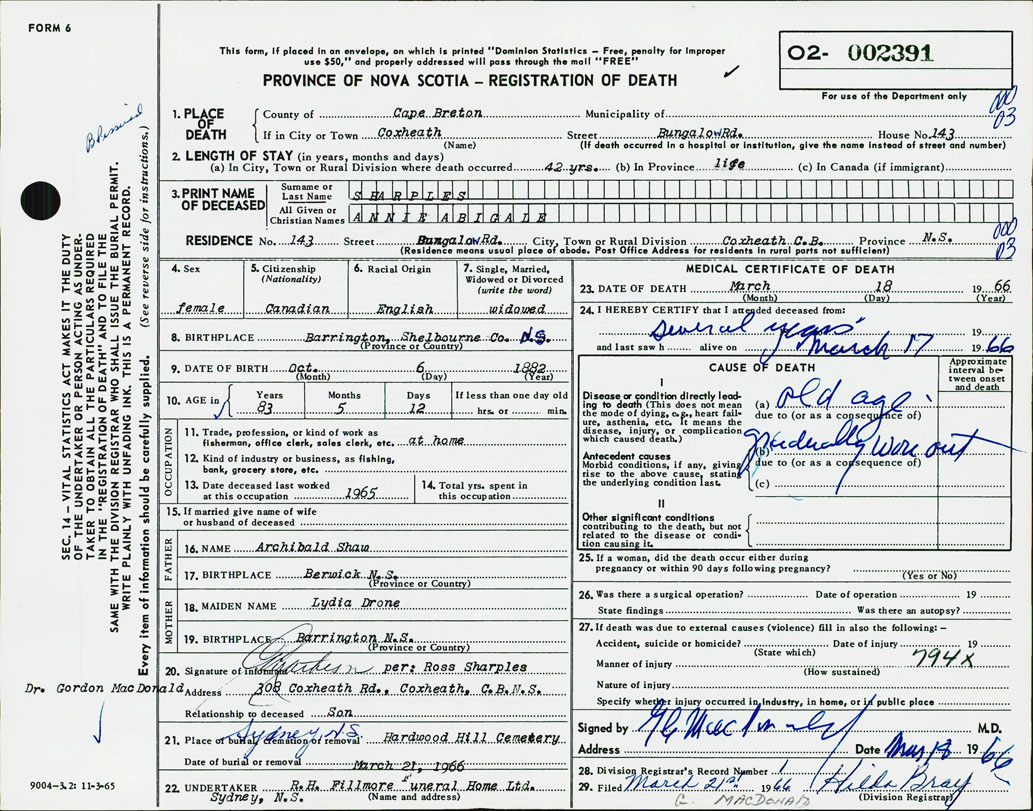 FORM 6
This form, if placed in an envelope, on which is printed "Dominion Statistics – Free, penalty for improper
use $50," and properly addressed will pass through the mail "FREE"
PROVINCE OF NOVA SCOTIA – REGISTRATION OF DEATH ✓
02- 002391
For use of the Department only
000
03
1. PLACE OF DEATH
County of Cape Breton Municipality of
If in City or Town Coxheath Street Bungalow Rd. House No. 143
(Name) (If death occurred in a hospital or institution, give the name instead of street and number)
2. LENGTH OF STAY (in years, months and days)
(a) In City, Town or Rural Division where death occurred 42 yrs. (b) In Province life (c) In Canada (if immigrant)
3. PRINT NAME OF DECEASED
Surname or Last Name SHARPLES
All Given or Christian Names ANNIE ABIGALE
000
03
RESIDENCE No. 143 Street Bungalow Rd. City, Town or Rural Division Coxheath C.B. Province N.S.
(Residence means usual place of abode. Post Office Address for residents in rural parts not sufficient)
4. Sex
female
5. Citizenship
(Nationality)
Canadian
6. Racial Origin
English
7. Single, Married,
Widowed or Divorced
(write the word)
widowed
8. BIRTHPLACE Barrington, Shelbourne Co. N.S.
(Province or Country)
9. DATE OF BIRTH Oct. 6 1882
(Month) (Day) (Year)
10. AGE in ✓
Years Months Days If less than one day old
83 5 12 hrs. or min.
OCCUPATION
11. Trade, profession, or kind of work as
fisherman, office clerk, sales clerk, etc. at home
12. Kind of industry or business, as fishing,
bank, grocery store, etc.
13. Date deceased last worked
at this occupation 1965
14. Total yrs. spent in
this occupation
15. If married give name of wife
or husband of deceased
FATHER
16. NAME Archibald Shaw
17. BIRTHPLACE Berwick N.S.
(Province or Country)
MOTHER
18. MAIDEN NAME Lydia Drone
19. BIRTHPLACE Barrington N.S.
(Province or Country)
20. Signature of informant per: Ross Sharples
Address 308 Coxheath Rd., Coxheath, C.B.N.S.
Relationship to deceased Son
21. Place of burial, cremation or removal Sydney N.S. Hardwood Hill Cemetery
Date of burial or removal March 21, 1966
22. UNDERTAKER R.H. Fillmore Funeral Home Ltd.
Sydney, N.S. (Name and address)
MEDICAL CERTIFICATE OF DEATH
23. DATE OF DEATH March 18 1966
(Month) (Day) (Year)
24. I HEREBY CERTIFY that I attended deceased from:
several years 19
and last saw h alive on March 17 1966
CAUSE OF DEATH
Approximate
interval be-
tween onset
and death
I
Disease or condition directly lead-
ing to death (This does not mean
the mode of dying, e.g., heart fail-
ure, asthenia, etc. It means the
disease, injury, or complication
which caused death.)
(a) old age
due to (or as a consequence of)
Antecedent causes
Morbid conditions, if any, giving
rise to the above cause, stating
the underlying condition last.
(b) gradually wore out
due to (or as a consequence of)
(c)
II
Other significant conditions
contributing to the death, but not
related to the disease or condi-
tion causing it.
25. If a woman, did the death occur either during
pregnancy or within 90 days following pregnancy?
(Yes or No)
26. Was there a surgical operation? Date of operation 19
State findings Was there an autopsy?
27. If death was due to external causes (violence) fill in also the following: –
Accident, suicide or homicide? Date of injury 19
(State which) 794X
Manner of injury
(How sustained)
Nature of injury
Specify whether injury occurred in industry, in home, or in public place
Signed by M.D.
Address Date Mar 18 1966
28. Division Registrar's Record Number 1
29. Filed March 21st 1966 Hilda Bray
(Division Registrar)
G. MACDONALD
SEC. 14 – VITAL STATISTICS ACT MAKES IT THE DUTY
OF THE UNDERTAKER OR PERSON ACTING AS UNDER-
TAKER TO OBTAIN ALL THE PARTICULARS REQUIRED
IN THE "REGISTRATION OF DEATH" AND TO FILE THE
SAME WITH THE DIVISION REGISTRAR WHO SHALL ISSUE THE BURIAL PERMIT.
WRITE PLAINLY WITH UNFADING INK. THIS IS A PERMANENT RECORD.
Every item of information should be carefully supplied. (See reverse side for instructions.)
Dr. Gordon MacDonald
9004-3.2: 11-3-65